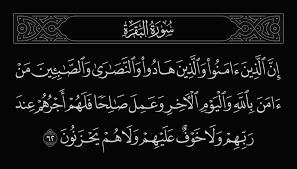 سُورَةُ البَقَرَةِ
إِنَّ ٱلَّذِينَ ءَامَنُوا۟ وَٱلَّذِينَ هَادُوا۟ وَٱلنَّصَٰرَىٰ وَٱلصَّٰبِـِٔينَ مَنْ
ءَامَنَ بِٱللَّهِ وَٱلْيَوْمِ ٱلْءَاخِرِ وَعَمِلَ صَٰلِحًا فَلَهُمْ أَجْرُهُمْ عِندَ
رَبِّهِمْ وَلَا خَوْفٌ عَلَيْهِمْ وَلَا هُمْ يَحْزَنُونَ ٦٢